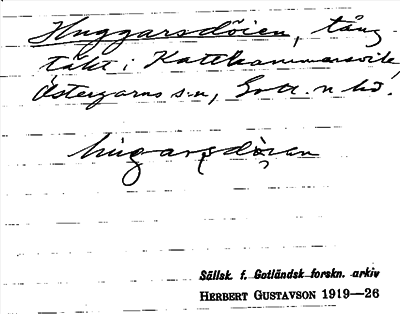 Huggarsdöien, tång-
täkt i Katthammarsvik,
Östergarns s:n, Gotl. n hd.
húgarsdòien
Sällsk. f. Gotländsk forskn. arkiv
HERBERT GUSTAVSON 1919—26